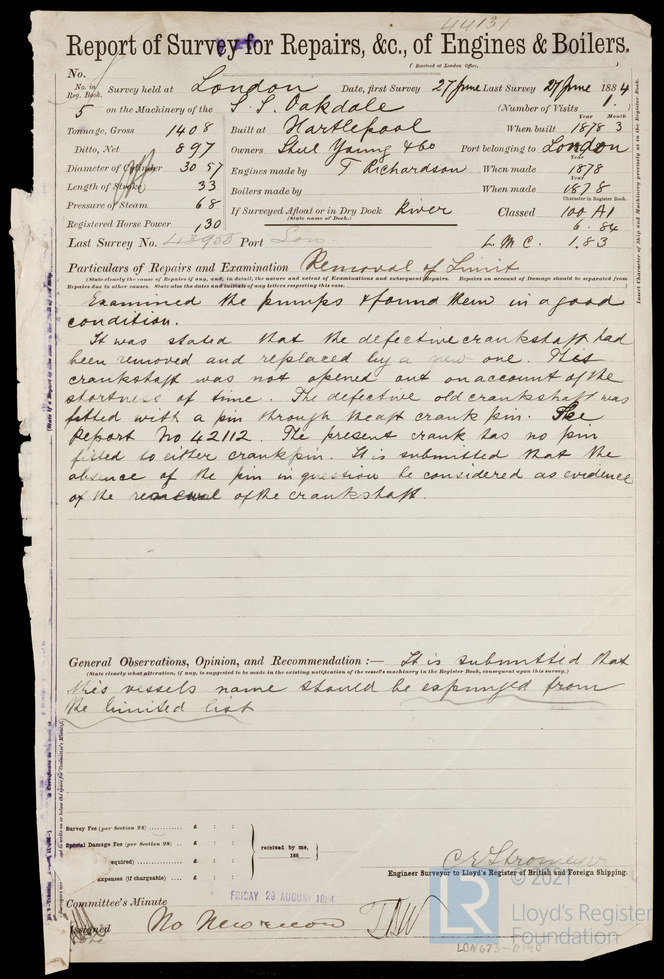 44131
Report of Survey for Repairs, &c., of Engines & Boilers.
(Received at London Office, )
No.
No. in Reg. Book. Survey held at London Date, first Survey 27 June Last Survey 27 June 1884
5 on the Machinery of the S. S. Oakdale (Number of Visits 1.)
Tonnage, Gross 1408 Built at Hartlepool When built 1878 3
Ditto, Net 897 Owners Steel Young & Co Port belonging to London
Diameter of Cylinder 30 57 Engines made by T Richardson When made 1878
Length of Stroke 33 Boilers made by When made 1878
Pressure of Steam 68 If Surveyed Afloat or in Dry Dock River Classed 100 A1
(State name of Dock.) Character in Register Book.
Registered Horse Power 130 6. 84
Last Survey No. 43955 Port Lon L. M. C. 1.83
Particulars of Repairs and Examination Removal of Limit
(State clearly the cause of Repairs if any, and, in detail, the nature and extent of Examinations and subsequent Repairs. Repairs on account of Damage should be separated from
Repairs due to other causes. State also the dates and initials of any letters respecting this case.)
Examined the pumps & found them in a good
condition.
It was stated that the defective crankshaft had
been removed and replaced by a new one. This
crankshaft was not opened out on account of the
shortness of time. The defective old crankshaft was
fitted with a pin through the aft crank pin. See
Report No 42112. The present crank has no pin
fitted to either crankpin. It is submitted that the
absence of the pin in question be considered as evidence
of the renewal of the crankshaft.
General Observations, Opinion, and Recommendation :— It is submitted that
(State clearly what alteration, if any, is suggested to be made in the existing notification of the vessel's machinery in the Register Book, consequent upon this survey.)
this vessels name should be expunged from
the limited list
Survey Fee (per Section 28) £ : :
Special Damage Fee (per Section 28) £ : :
equired) £ : :
Expenses (if chargeable) £ : :
received by me,
188
C E Stromeyer
Engineer Surveyor to Lloyd's Register of British and Foreign Shipping.
Committee's Minute FRIDAY 29 AUGUST 1884
Assigned No
LR © 2021
Lloyd's Register
Foundation
LON673-0190
Insert Character of Ship and Machinery precisely as in the Register Book.